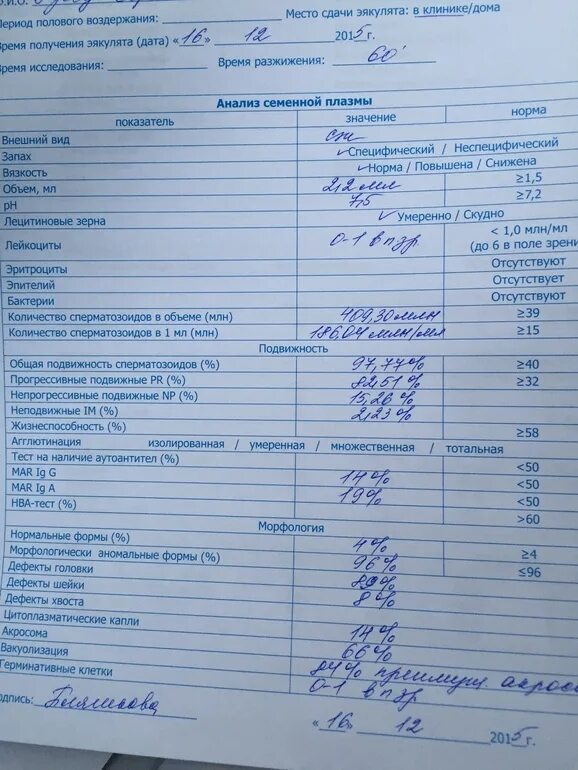 Период полового воздержания: Место сдачи эякулята: в клинике/дома
Время получения эякулята (дата) «16» 12 2015г.
Время исследования: Время разжижения: 60'
Анализ семенной плазмы
показатель значение норма
Внешний вид
Запах Специфический / Неспецифический
Вязкость Норма / Повышена / Снижена
Объем, мл 2,2 мл ≥1,5
pH 7,5 ≥7,2
Лецитиновые зерна Умеренно / Скудно
Лейкоциты 0-1 в п/зр < 1,0 млн/мл
(до 6 в поле зрени
Эритроциты Отсутствуют
Эпителий Отсутствует
Бактерии Отсутствуют
Количество сперматозоидов в объеме (млн) 409,30 млн ≥39
Количество сперматозоидов в 1 мл (млн) 186,04 млн/мл ≥15
Подвижность
Общая подвижность сперматозоидов (%) 97,77% ≥40
Прогрессивные подвижные PR (%) 82,51% ≥32
Непрогрессивные подвижные NP (%) 15,26%
Неподвижные IM (%) 2,23%
Жизнеспособность (%) ≥58
Агглютинация изолированная / умеренная / множественная / тотальная
Тест на наличие аутоантител (%) <50
MAR Ig G 14% <50
MAR Ig A 19% <50
НВА-тест (%) >60
Морфология
Нормальные формы (%) 4% ≥4
Морфологически аномальные формы (%) 96% ≤96
Дефекты головки
Дефекты шейки 8%
Дефекты хвоста
Цитоплазматические капли 14%
Акросома 66%
Вакуолизация 84% преимущ
Герминативные клетки 0-1 в п/зр
одпись:
«16» 12 2015г.